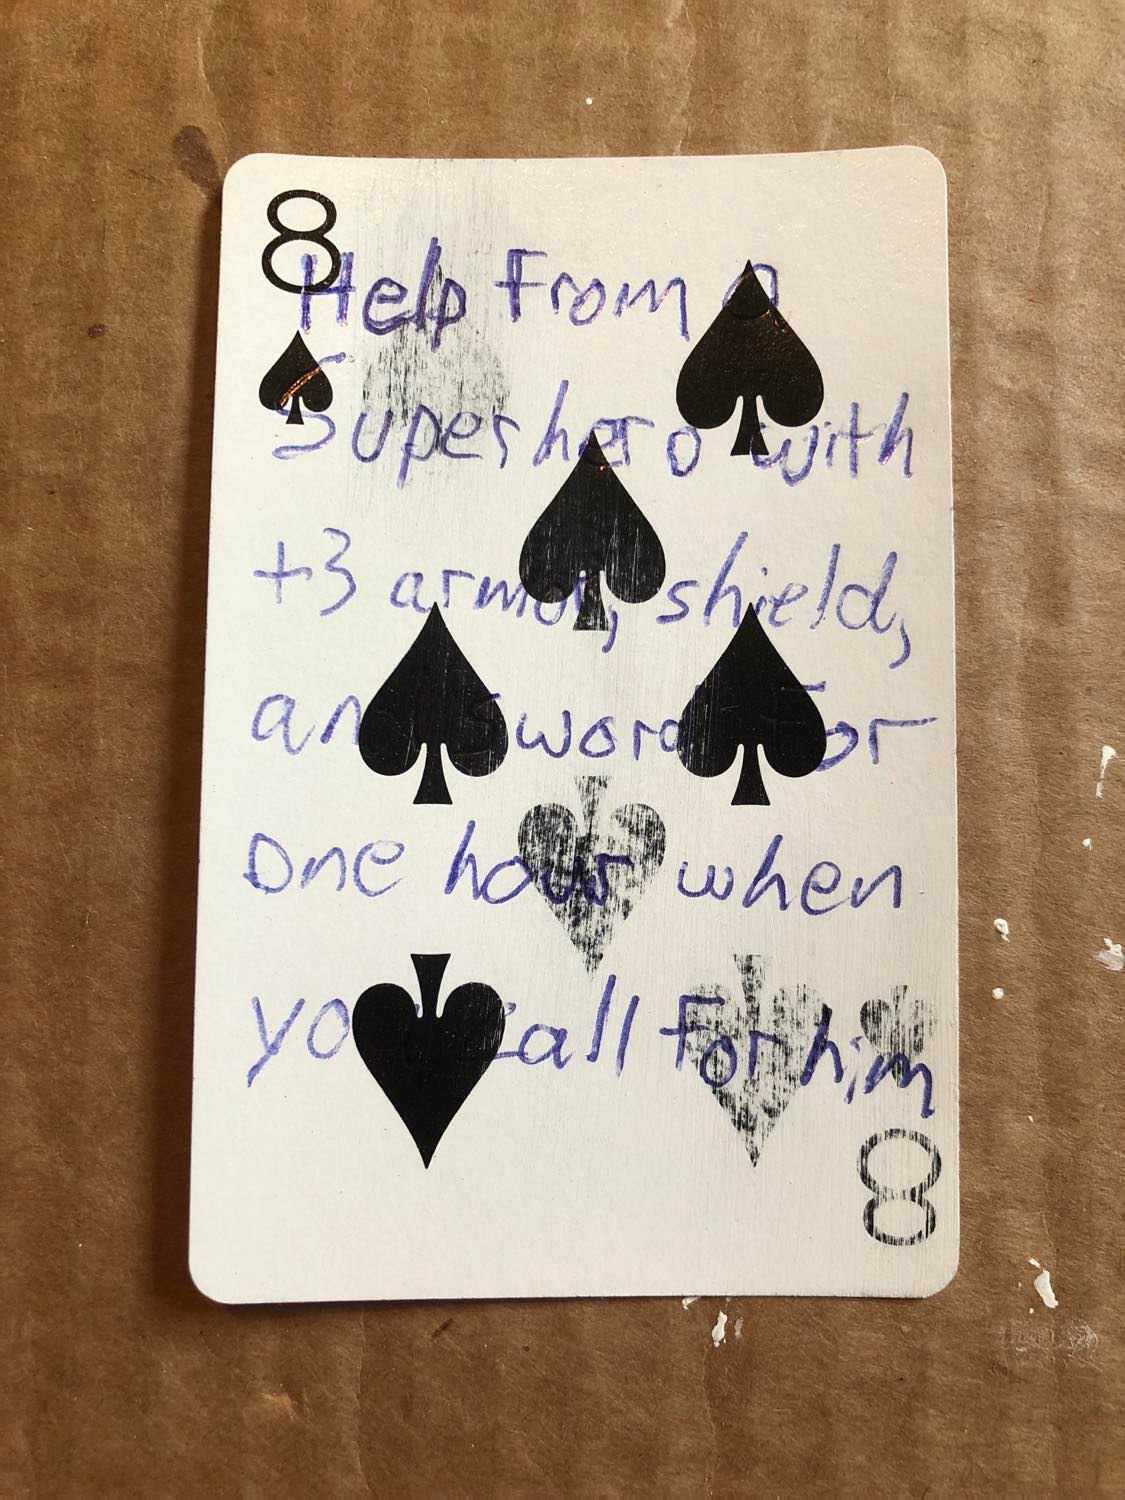 8
Help From a
Superhero with
+3 armor, shield,
and sword For
one hour when
you call For him
8